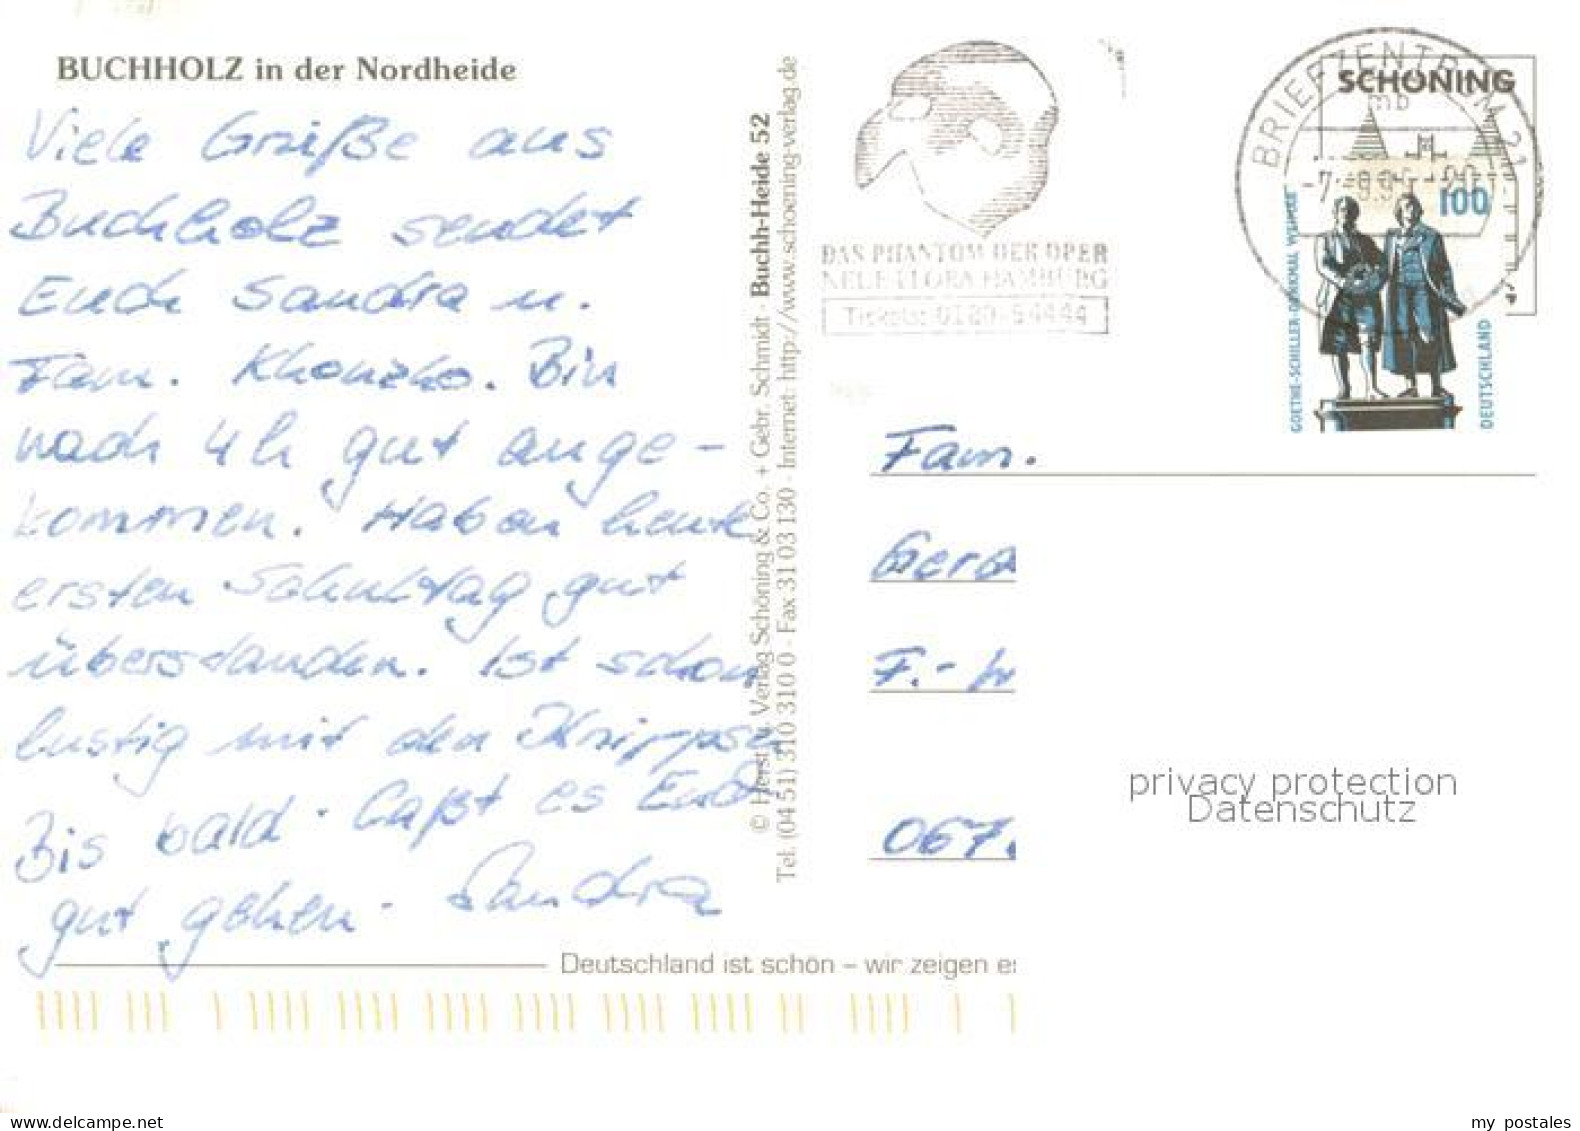 BUCHHOLZ in der Nordheide
Viele Grüße aus
Buchholz sendet
Euch Sandra u.
Fam.
Bin
nach 4 h gut ange-
kommen. Haben heute
ersten Schultag gut
überstanden. Ist schon
lustig mit den Knirpsen
Bis bald. Laßt es Euch
gut gehen. Sandra
© Horst W. Verlag Schöning & Co. + Gebr. Schmidt · Buchh-Heide 52
Tel. (04 51) 310 310 0 · Fax 31 03 130 · Internet: http://www.schoening-verlag.de
DAS PHANTOM DER OPER
NEUE FLORA HAMBURG
Tickets: 0180-54444
BRIEFZENTRUM 21
mb
SCHÖNING
100
GOETHE-SCHILLER-DENKMAL WEIMAR
DEUTSCHLAND
Fam.
Gera
F.-
067
privacy protection
Datenschutz
Deutschland ist schön – wir zeigen es
www.delcampe.net
my postales